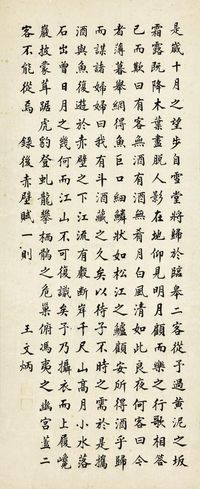 是歲十月之望步自雪堂將歸於臨皋二客從予過黃泥之坂
霜露既降木葉盡脫人影在地仰見明月顧而樂之行歌相答
已而歎曰有客無酒有酒無肴月白風清如此良夜何客曰今
者薄暮舉網得魚巨口細鱗狀如松江之鱸顧安所得酒乎歸
而謀諸婦婦曰我有斗酒藏之久矣以待子不時之需於是攜
酒與魚復遊於赤壁之下江流有聲斷岸千尺山高月小水落
石出曾日月之幾何而江山不可復識矣予乃攝衣而上履巉
巖披蒙茸踞虎豹登虬龍攀棲鶻之危巢俯馮夷之幽宮蓋二
客不能從焉 錄後赤壁賦一則 王文炳